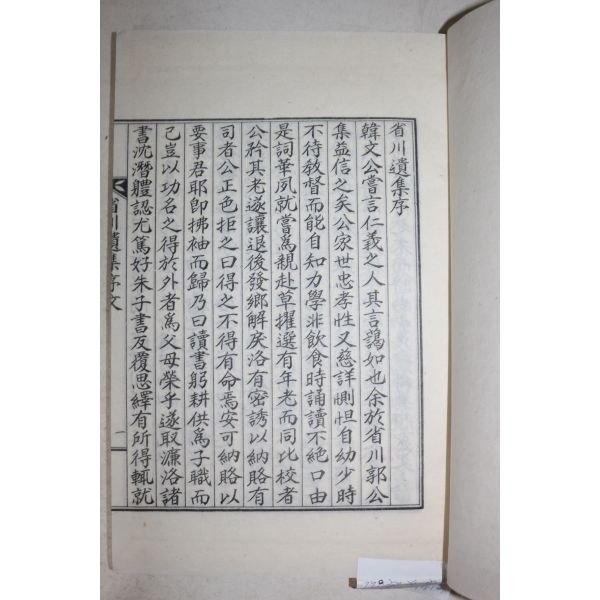 省川遺集序
韓文公嘗言仁義之人其言藹如也余於省川郭公
集益信之矣公家世忠孝性又慈詳惻怛自幼少時
不待敎督而能自知力學非飮食時誦讀不絶口由
是詞華夙就嘗爲親赴草擢選有年老而同比校者
公矜其老遂讓退後發鄕解戾洛有密誘以納賂有
司者公正色拒之曰得之不得有命焉安可納賂以
要事君耶卽拂袖而歸乃曰讀書躬耕供爲子職而
已豈以功名之得於外者爲父母榮乎遂取濂洛諸
書沈潛體認尤篤好朱子書反覆思繹有所得輒就
省川遺集序文
一